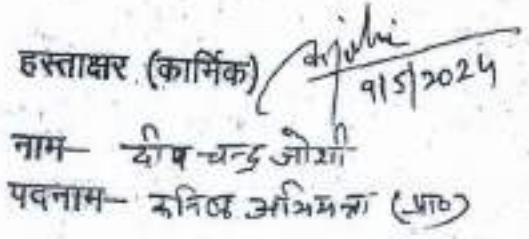 हस्ताक्षर (कार्मिक)
9/5/2024
नाम— दीप चन्द्र जोशी
पदनाम— कनिष्ठ अभियन्ता (प्रा०)